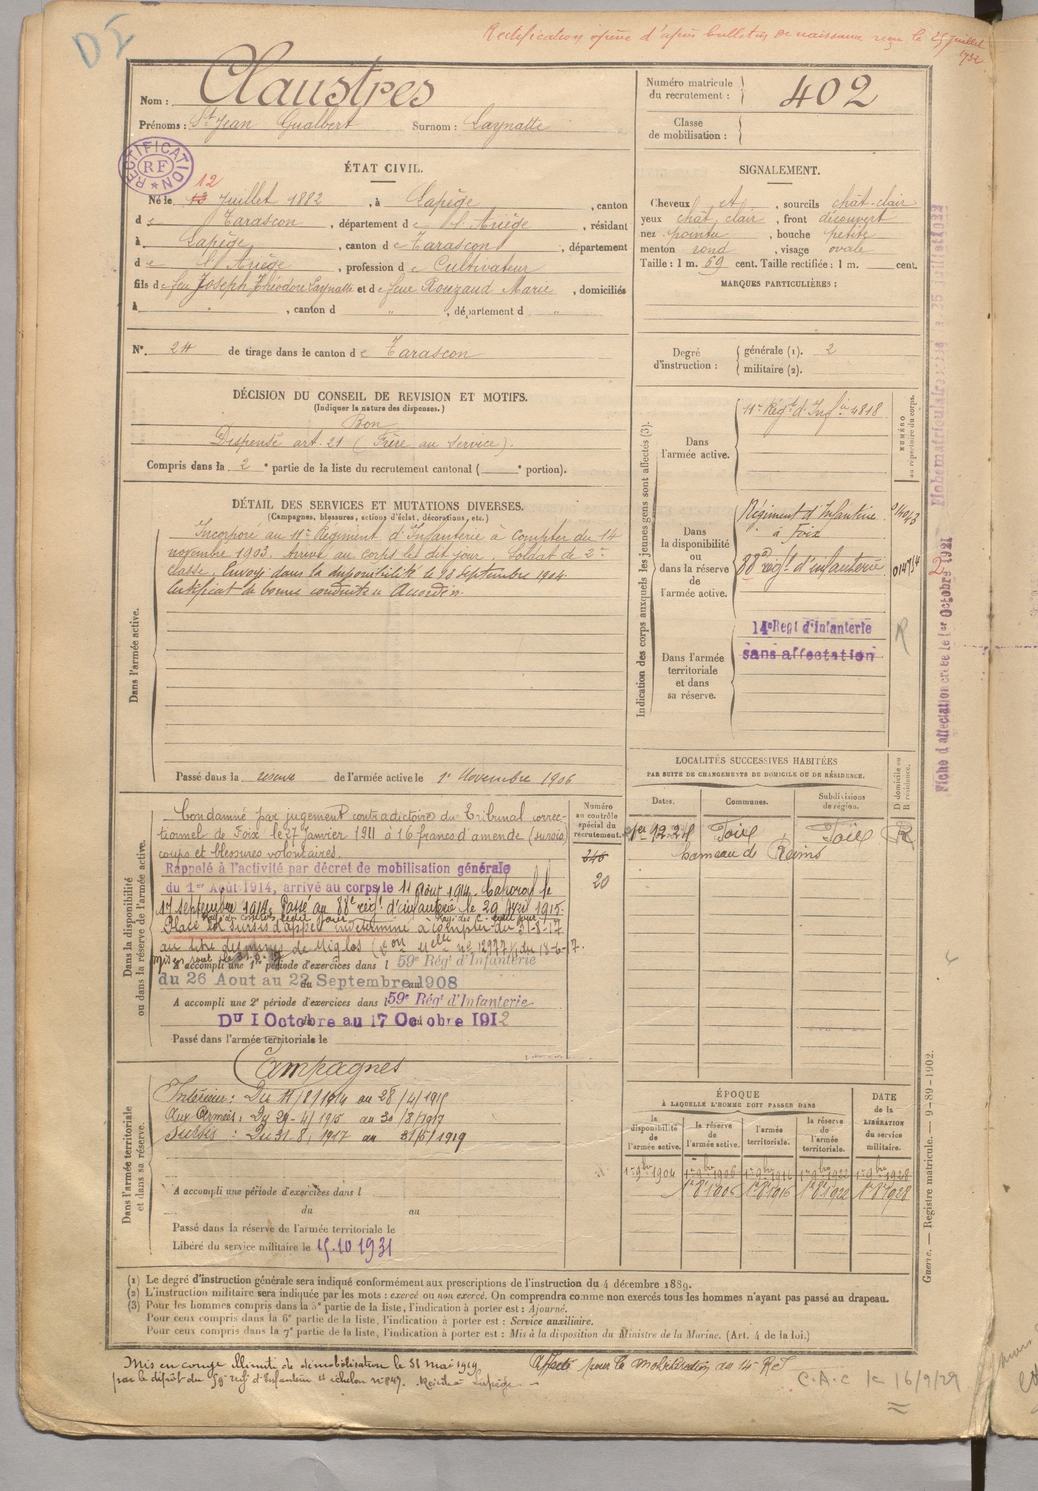 D I
Rectification opérée d'après bulletin de naissance reçu le 25 juillet
1932
Nom : Claustres
Prénoms : St Jean Gualbert Surnom : Laynatte
Numéro matricule
du recrutement : 402
Classe
de mobilisation :
RECTIFICATION
RF
ÉTAT CIVIL.
12
Né le 13 Juillet 1882, à Lapège, canton
d e Tarascon, département d e l'Ariège, résidant
à Lapège, canton d e Tarascon, département
d e l'Ariège, profession d e Cultivateur
fils d e feu Joseph Théodore Laynatte et d e feue Rouzaud Marie, domiciliés
à , canton d " , département d "
N° 24 de tirage dans le canton d e Tarascon
SIGNALEMENT.
Cheveux et, sourcils chât-clair
yeux chât clair, front découvert
nez pointu, bouche petite
menton rond, visage ovale
Taille : 1 m. 59 cent. Taille rectifiée : 1 m. cent.
MARQUES PARTICULIÈRES :
Degré
d'instruction :
générale (1). 2
militaire (2).
DÉCISION DU CONSEIL DE REVISION ET MOTIFS.
(Indiquer la nature des dispenses.)
Bon
Dispensé art. 21 (Frère au service).
Compris dans la 2e partie de la liste du recrutement cantonal ( e portion).
DÉTAIL DES SERVICES ET MUTATIONS DIVERSES.
(Campagnes, blessures, actions d'éclat, décorations, etc.)
Dans l'armée active.
Incorporé au 11e Régiment d'Infanterie à compter du 14
novembre 1903. Arrivé au corps le dit jour. Soldat de 2e
classe. Envoyé dans la disponibilité le 18 septembre 1904
Certificat de bonne conduite Accordé.
Passé dans la réserve de l'armée active le 1er Novembre 1906
Indication des corps auxquels les jeunes gens sont affectés (3).
NUMÉRO
au répertoire du corps.
Dans
l'armée active.
11e Régt d'Infie 4818
Dans
la disponibilité
ou
dans la réserve
de
l'armée active.
Régiment d'Infanterie
à Foix
88e régt d'infanterie
Dans l'armée
territoriale
et dans
sa réserve.
14e Regt d'Infanterie
sans affectation
R
Fiche d'affectation créée le 1er Octobre 1921
LOCALITÉS SUCCESSIVES HABITÉES
PAR SUITE DE CHANGEMENTS DE DOMICILE OU DE RÉSIDENCE.
Dates. Communes. Subdivisions
de région.
D domicile ou
R résidence.
Foix Foix R
hameau de Reins
Dans la disponibilité
ou dans la réserve de l'armée active.
Numéro
au contrôle
spécial du
recrutement.
20
Condamné par jugement contradictoire du Tribunal correc-
tionnel de Foix le 27 janvier 1911 à 16 francs d'amende (sursis)
coups et blessures volontaires.
Rappelé à l'activité par décret de mobilisation générale
du 1er Août 1914, arrivé au corps le 11 Août 1914. Caporal le
17 septembre 1914. Passé au 88e régt d'infanterie le 29 Avril 1915.
Placé en sursis d'appel indéterminé à compter du 31-8-17
au titre des mines de Miglos
A accompli une 1re période d'exercices dans l 59e Régt d'Infanterie
du 26 Aout au 22 Septembre 1908
A accompli une 2e période d'exercices dans l 59e Régt d'Infanterie
DU 1 Octobre au 17 Octobre 1912
Passé dans l'armée territoriale le
Dans l'armée territoriale
et dans sa réserve.
Campagnes
Intérieur : Du 11/8/1914 au 28/4/1915
Aux Armées : Du 29-4/1915 au 30/8/1917
Sursis : Du 31.8.1917 au 31/5/1919
A accompli une période d'exercices dans l
du au
Passé dans la réserve de l'armée territoriale le
Libéré du service militaire le 15.10.1931
ÉPOQUE
À LAQUELLE L'HOMME DOIT PASSER DANS
la
disponibilité
de
l'armée active.
la réserve
de
l'armée active.
l'armée
territoriale.
la réserve
de
l'armée
territoriale.
DATE
de la
LIBÉRATION
du service
militaire.
1er 9bre 1904 1er 9bre 1906 1er 9bre 1916 1er 9bre 1922 1er 9bre 1928
Guerre. — Registre matricule. — 9-89-1902.
(1) Le degré d'instruction générale sera indiqué conformément aux prescriptions de l'instruction du 4 décembre 1889.
(2) L'instruction militaire sera indiquée par les mots : exercé ou non exercé. On comprendra comme non exercés tous les hommes n'ayant pas passé au drapeau.
(3) Pour les hommes compris dans la 5e partie de la liste, l'indication à porter est : Ajourné.
Pour ceux compris dans la 6e partie de la liste, l'indication à porter est : Service auxiliaire.
Pour ceux compris dans la 7e partie de la liste, l'indication à porter est : Mis à la disposition du Ministre de la Marine. (Art. 4 de la loi.)
Mis en congé illimité de démobilisation le 31 Mai 1919
par le dépôt du 59e régt d'Infanterie
Affecté pour la mobilisation au 14e R.I
C.A.C le 16/9/29